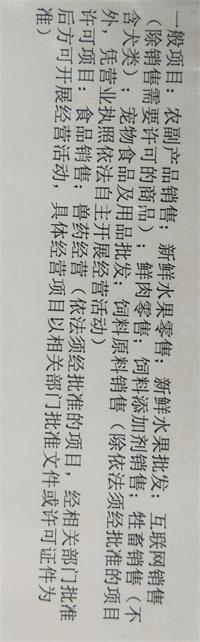 一般项目：农副产品销售；新鲜水果零售；新鲜水果批发；互联网销售
（除销售需要许可的商品）；鲜肉零售；饲料添加剂销售；牲畜销售（不
含犬类）；宠物食品及用品批发；饲料原料销售（除依法须经批准的项目
外，凭营业执照依法自主开展经营活动）
许可项目：食品销售；兽药经营（依法须经批准的项目，经相关部门批准
后方可开展经营活动，具体经营项目以相关部门批准文件或许可证件为
准）